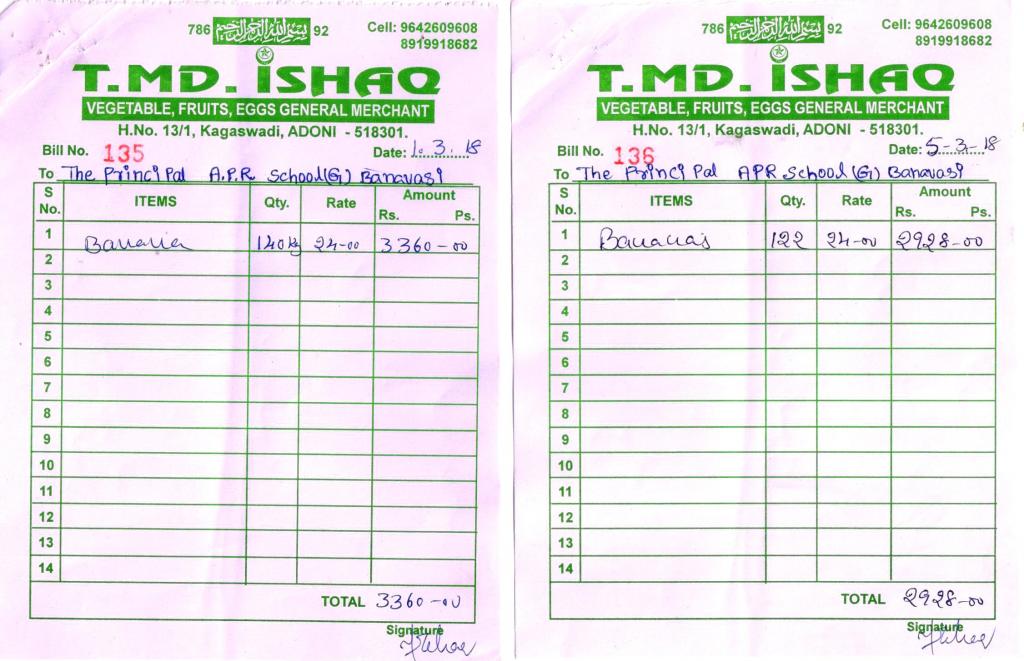 786 بسم الله الرحمن الرحيم 92
Cell: 9642609608
8919918682
T.MD. ISHAQ
VEGETABLE, FRUITS, EGGS GENERAL MERCHANT
H.No. 13/1, Kagaswadi, ADONI - 518301.
Bill No. 135 Date: 1.3.18
To The Principal A.P.R School (G) Banavasi
S No. ITEMS Qty. Rate Amount Rs. Ps.
1 Banana 140kg 24-00 3360-00
2
3
4
5
6
7
8
9
10
11
12
13
14
TOTAL 3360-00
Signature
786 بسم الله الرحمن الرحيم 92
Cell: 9642609608
8919918682
T.MD. ISHAQ
VEGETABLE, FRUITS, EGGS GENERAL MERCHANT
H.No. 13/1, Kagaswadi, ADONI - 518301.
Bill No. 136 Date: 5-3-18
To The Principal APR School (G) Banavasi
S No. ITEMS Qty. Rate Amount Rs. Ps.
1 Bananas 122 24-00 2928-00
2
3
4
5
6
7
8
9
10
11
12
13
14
TOTAL 2928-00
Signature